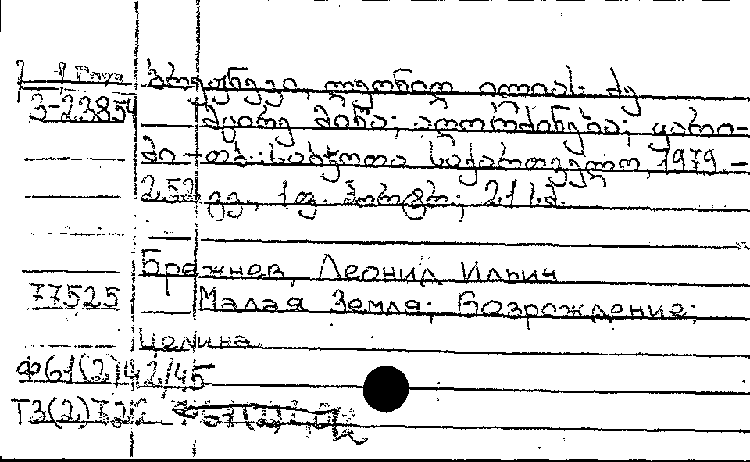 ბრეჟნევი, ლეონიდ ილიას ძე
3-23854
მცირე მიწა; აღორძინება; ყამი-
რი.-თბ.: საბჭოთა საქართველო, 1979.-
252 გვ., 1 ფ. პორტრ.; 21 სმ.
Брежнев, Леонид Ильич
77525 Малая Земля; Возрождение;
Целина
Ф61(2)42/45
Т3(2)722